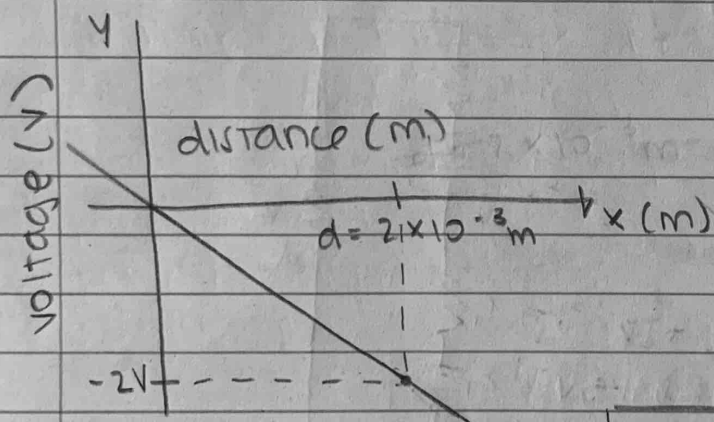 y
voltage (v)
distance (m)
x (m)
d = 21 x 10⁻³m
-2V